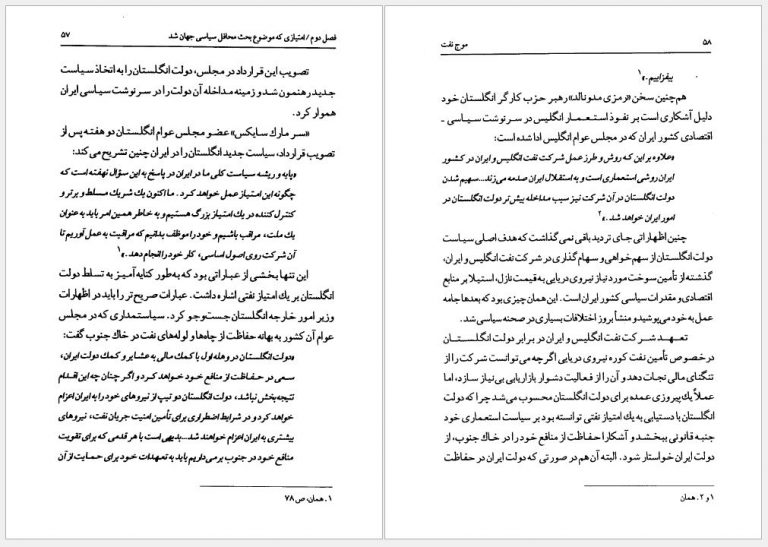 فصل دوم / امتیازی که موضوع بحث محافل سیاسی جهان شد ۵۷
تصویب این قرارداد در مجلس، دولت انگلستان را به اتخاذ سیاست
جدید رهنمون شد و زمینه مداخله آن دولت را در سرنوشت سیاسی ایران
هموار کرد.
«سر مارك سایکس» عضو مجلس عوام انگلستان دو هفته پس از
تصویب قرارداد، سیاست جدید انگلستان را در ایران چنین تشریح می‌کند:
«پایه و ریشه سیاست کلی ما در ایران در پاسخ به این سؤال نهفته است که
چگونه این امتیاز عمل خواهد کرد. ما اکنون یك شریك مسلط و برتر و
کنترل کننده در یك امتیاز بزرگ هستیم و به خاطر همین امر باید به عنوان
یك ملت، مراقب باشیم و خود را موظف بدانیم که مراقبت به عمل آوریم تا
آن شرکت روی اصول اساسی، کار خود را انجام دهد.»۱
این تنها بخشی از عباراتی بود که به‌طور کنایه‌آمیز به تسلط دولت
انگلستان بر یك امتیاز نفتی اشاره داشت. عبارات صریح‌تر را باید در اظهارات
وزیر امور خارجه انگلستان جست‌وجو کرد. سیاستمداری که در مجلس
عوام آن کشور به بهانه حفاظت از چاه‌ها و لوله‌های نفت در خاك جنوب گفت:
«دولت انگلستان در وهله اول با کمك مالی به عشایر و کمك دولت ایران،
سعی در حفاظت از منافع خود خواهد کرد و اگر چنان چه این اقدام
نتیجه‌بخش نباشد، دولت انگلستان دو تیپ از نیروهای خود را به ایران اعزام
خواهد کرد و در شرایط اضطراری برای تأمین امنیت جریان نفت، نیروهای
بیشتری به ایران اعزام خواهند شد...بدیهی است با هر قدمی که برای تقویت
منافع خود در جنوب برمی‌داریم باید به تعهدات خود برای حمایت از آن
۱. همان، ص ۷۸
۵۸ موج نفت
بیفزاییم.»۱
هم‌چنین سخن «رمزی مدونالد» رهبر حزب کارگر انگلستان خود
دلیل آشکاری است بر نفوذ استعمار انگلیس در سرنوشت سیاسی ـ
اقتصادی کشور ایران که در مجلس عوام انگلیس ادا شده است:
«علاوه بر این که روش و طرز عمل شرکت نفت انگلیس و ایران در کشور
ایران روشی استعماری است و به استقلال ایران صدمه می‌زند...سهیم شدن
دولت انگلستان در آن شرکت نیز سبب مداخله بیش‌تر دولت انگلستان در
امور ایران خواهد شد.»۲
چنین اظهاراتی جای تردید باقی نمی گذاشت که هدف اصلی سیاست
دولت انگلستان از سهم خواهی و سهام گذاری در شرکت نفت انگلیس و ایران،
گذشته از تأمین سوخت مورد نیاز نیروی دریایی به قیمت نازل، استیلا بر منابع
اقتصادی و مقدرات سیاسی کشور ایران است. این همان چیزی بود که بعدها جامه
عمل به خود می‌پوشید و منشأ بروز اختلافات بسیاری در صحنه سیاسی شد.
تعهد شرکت نفت انگلیس و ایران در برابر دولت انگلستان
در خصوص تأمین نفت کوره نیروی دریایی اگر چه می توانست شرکت را از
تنگنای مالی نجات دهد و آن را از فعالیت دشوار بازاریابی بی نیاز سازد، اما
عملاً یك پیروزی عمده برای دولت انگلستان محسوب می‌شد چرا که دولت
انگلستان با دستیابی به یك امتیاز نفتی توانسته بود بر سیاست استعماری خود
جنبه قانونی ببخشد و آشکارا حفاظت از منافع خود را در خاك جنوب، از
دولت ایران خواستار شود. البته آن هم در صورتی که دولت ایران در حفاظت
۱ و ۲. همان